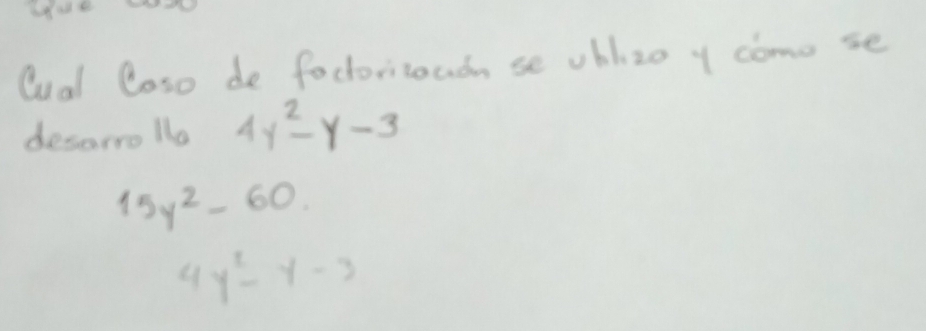 que caso
Cual Caso de factorización se utilizo y cómo se
desarrollo 4y² - y - 3
15y² - 60.
4y² - y - 3